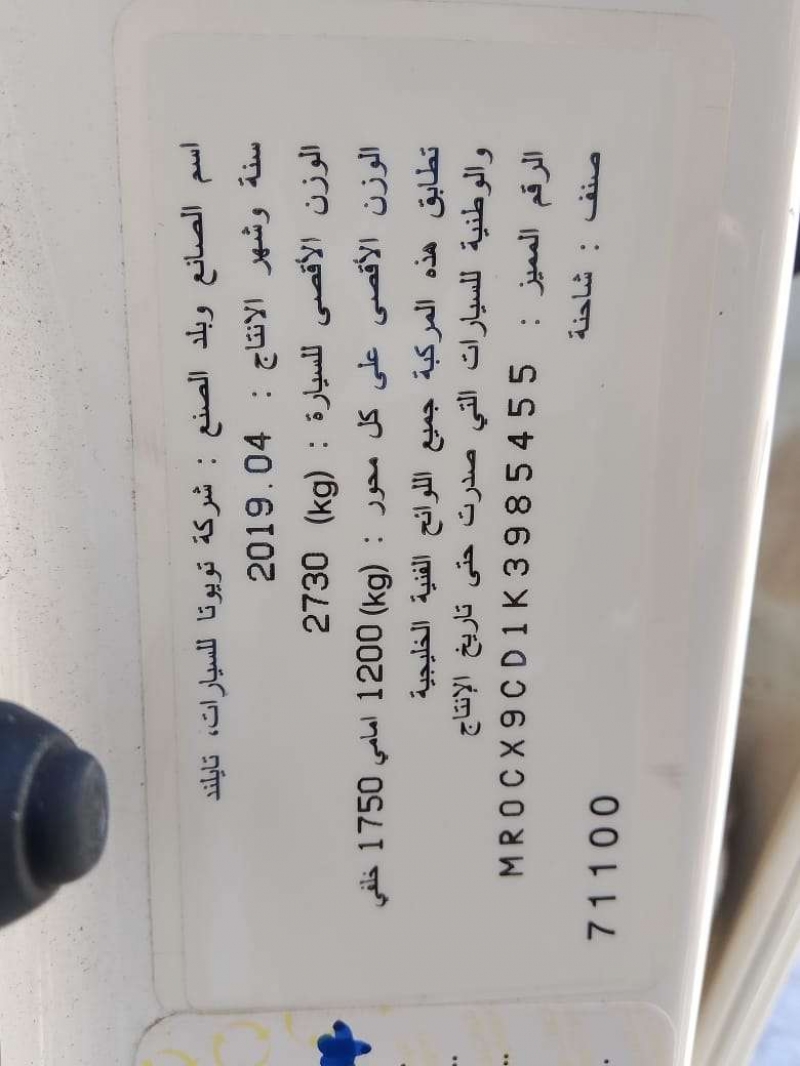 اسم الصانع وبلد الصنع : شركة تويوتا للسيارات، تايلند
سنة وشهر الانتاج : 2019.04
الوزن الأقصى للسيارة : (kg) 2730
الوزن الأقصى على كل محور : (kg) 1200 امامي 1750 خلفي
تطابق هذه المركبة جميع اللوائح الفنية الخليجية
والوطنية للسيارات التي صدرت حتى تاريخ الإنتاج
الرقم المميز : MR0CX9CD1K3985455
صنف : شاحنة
71100